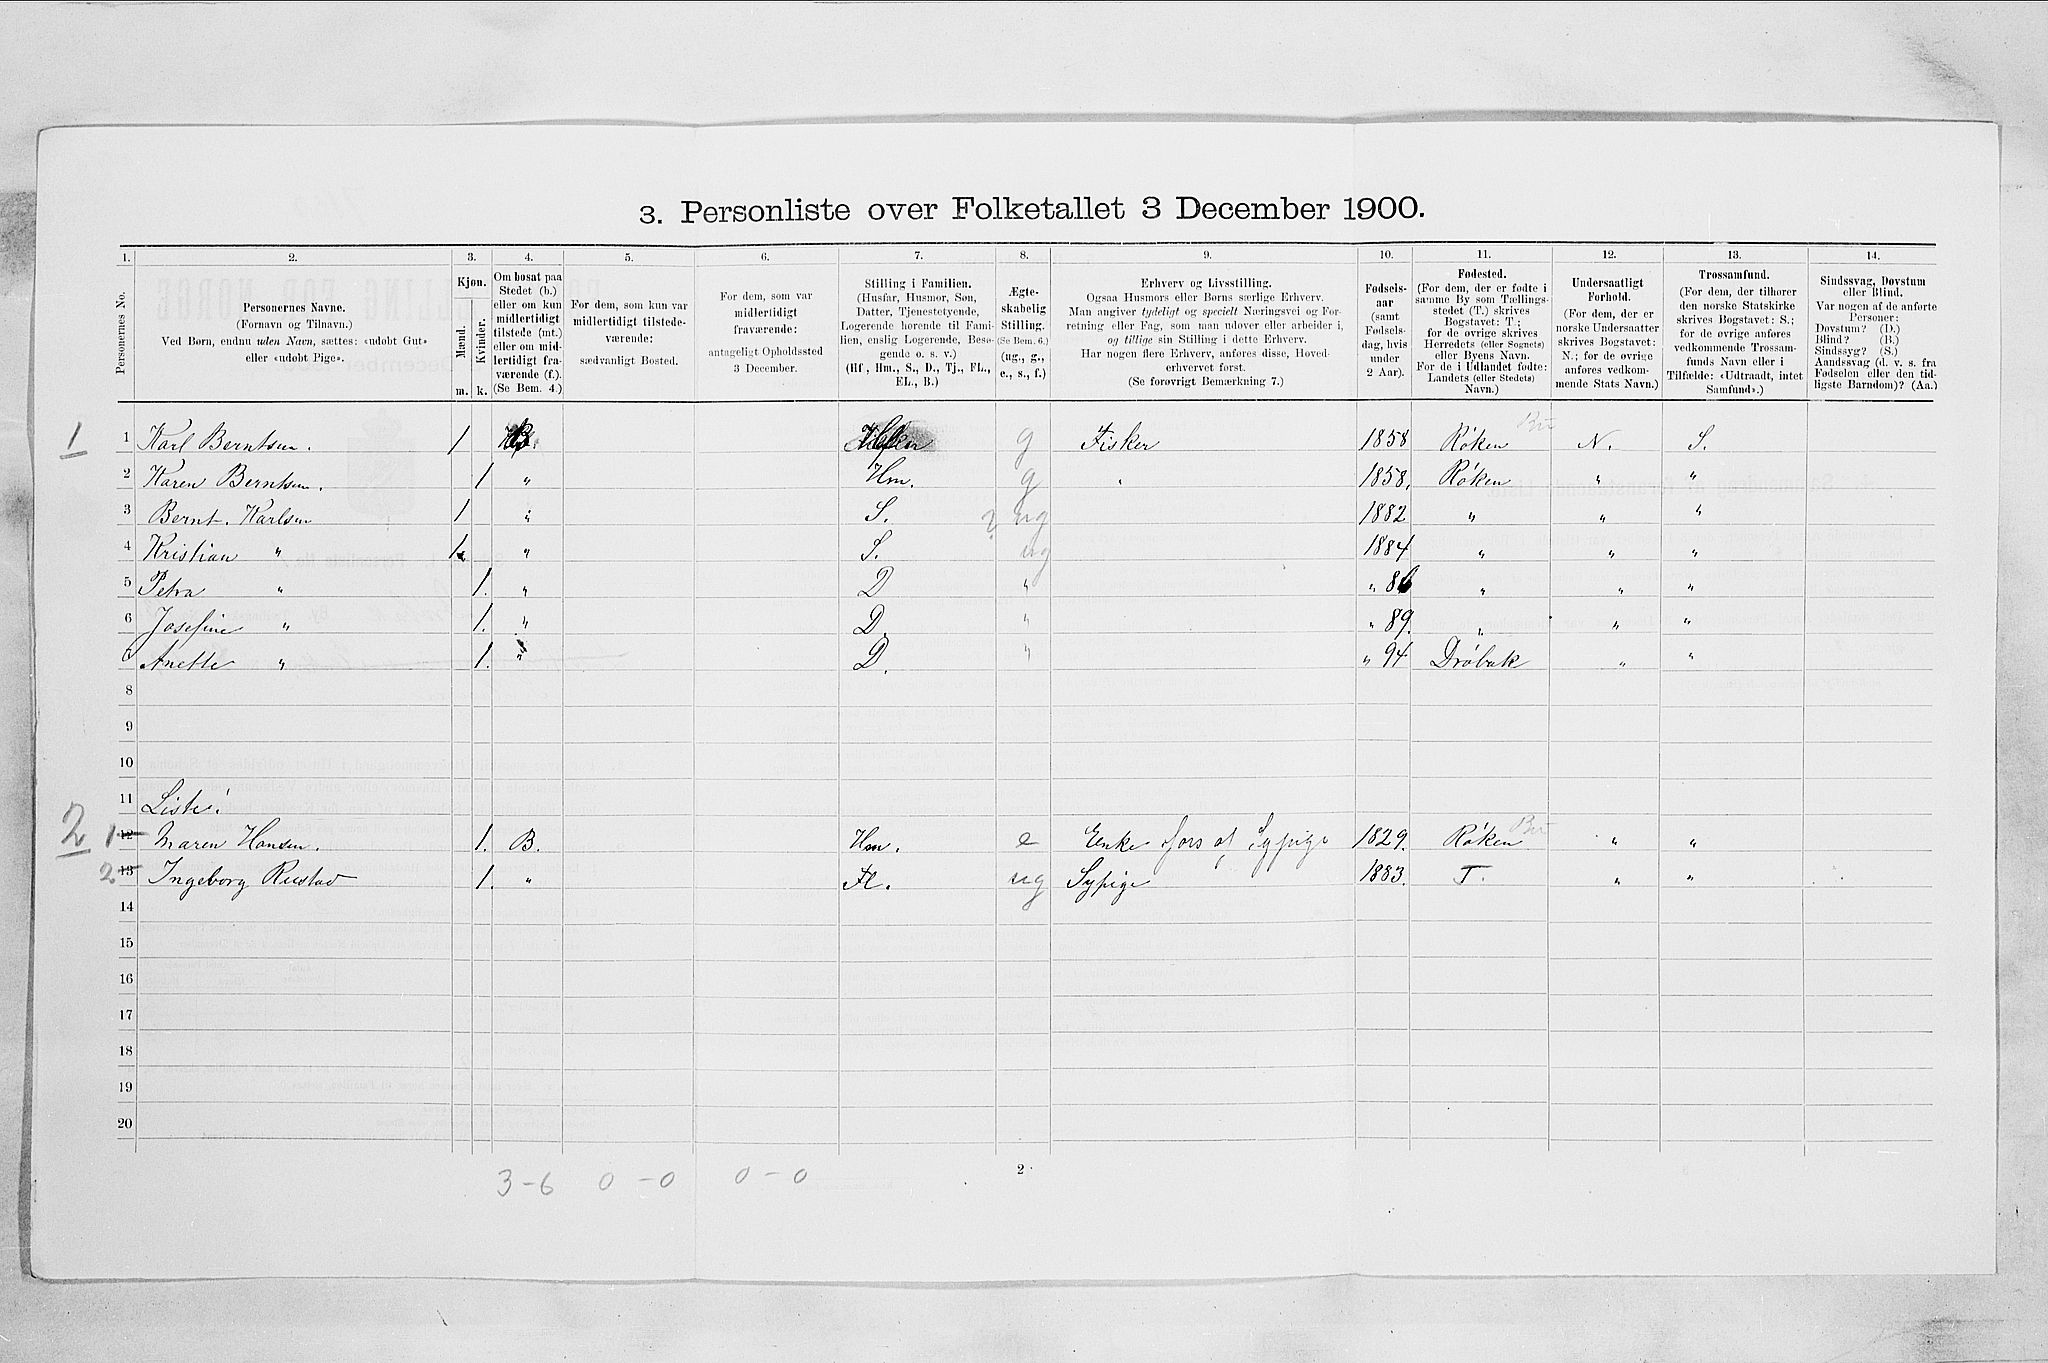 3. Personliste over Folketallet 3 December 1900.
1. 2. 3. 4. 5. 6. 7. 8. 9. 10. 11. 12. 13. 14.
Personernes No.
Personernes Navne.
(Fornavn og Tilnavn.)
Ved Børn, endnu uden Navn, sættes: «udøbt Gut»
eller «udøbt Pige».
Kjøn.
Mænd.
Kvinder.
m. k.
Om bosat paa
Stedet (b.)
eller om kun
midlertidigt
tilstede (mt.)
eller om mid-
lertidigt fra-
værende (f.).
(Se Bem. 4.)
For dem, som kun var
midlertidigt tilstede-
værende:
sædvanligt Bosted.
For dem, som var
midlertidigt
fraværende:
antageligt Opholdssted
3 December.
Stilling i Familien.
(Husfar, Husmor, Søn,
Datter, Tjenestetyende,
Logerende hørende til Fami-
lien, enslig Logerende, Besø-
gende o. s. v.)
(Hf, Hm., S., D., Tj., FL.,
EL., B.)
Ægte-
skabelig
Stilling.
(Se Bem. 6.)
(ug., g.,
e., s., f.)
Erhverv og Livsstilling.
Ogsaa Husmors eller Børns særlige Erhverv.
Man angiver tydeligt og specielt Næringsvei og For-
retning eller Fag, som man udøver eller arbeider i,
og tillige sin Stilling i dette Erhverv.
Har nogen flere Erhverv, anføres disse, Hoved-
erhvervet først.
(Se forøvrigt Bemærkning 7.)
Fødsels-
aar
(samt
Fødsels-
dag, hvis
under
2 Aar).
Fødested.
(For dem, der er fødte i
samme By som Tællings-
stedet (T.) skrives
Bogstavet: T.;
for de øvrige skrives
Herredets (eller Sognets)
eller Byens Navn.
For de i Udlandet fødte:
Landets (eller Stedets)
Navn.)
Undersaatligt
Forhold.
(For dem, der er
norske Undersaatter
skrives Bogstavet:
N.; for de øvrige
anføres vedkom-
mende Stats Navn.)
Trossamfund.
(For dem, der tilhører
den norske Statskirke
skrives Bogstavet: S.;
for de øvrige anføres
vedkommende Trossam-
funds Navn eller i
Tilfælde: «Udtraadt, intet
Samfund».)
Sindssvag, Døvstum
eller Blind.
Var nogen af de anførte
Personer:
Døvstum? (D.)
Blind? (B.)
Sindssyg? (S.)
Aandssvag (d. v. s. fra
Fødselen eller den tid-
ligste Barndom)? (Aa.)
1 1 Karl Berntsen. 1 B. g Fisker 1858 Røken N. S.
2 Karen Berntsen. 1 " Hm. g " 1858. Røken " "
3 Bernt. Karlsen 1 " S. ? ug 1882 " " "
4 Kristian " 1 " S. ug 1884 " " "
5 Petra " 1. " D " " 86 " " "
6 Josefine " 1. " D. " " 89. " " "
Anette " 1. " D. " " 94 Drøbak " "
8
9
10
11 Liste
2 1 12 Maren Hansen. 1. B. Hm. e Enke fors af Sypige 1829. Røken " "
2 13 Ingeborg Rustad 1. " Fl. ug Sypige 1883. T. " "
14
15
16
17
18
19
20
3-6 0-0 0-0
2